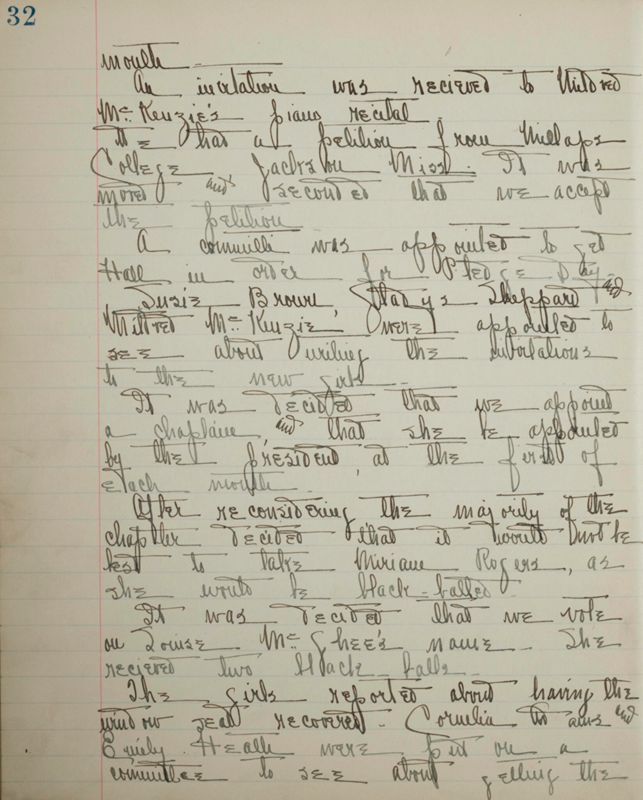 32
month
An invitation was recieved to Mildred
Mc Kenzie's piano recital.
We had a petition from Millsaps
College Jackson Miss. It was
moved and seconded that we accept
the petition
A committe was appointed to get
Hall in order for Pledge Day.
Susie Brown, Gladys Sheppard and
Mildred Mc Kenzie, were appointed to
see about writing the invitations
to the new girls.
It was decided that we appoint
a chaplain and that she be appointed
by the president, at the first of
each month
After re considering the majority of the
chapter decided that it would not be
best to take Miriam Rogers, as
she would be black-balled.
It was decided that we vote
on Louise Mc Ghee's name. She
recieved two black balls.
The girls reported about having the
window seat recovered. Cornelia and
Emily Heath were put on a
committee to see about getting the